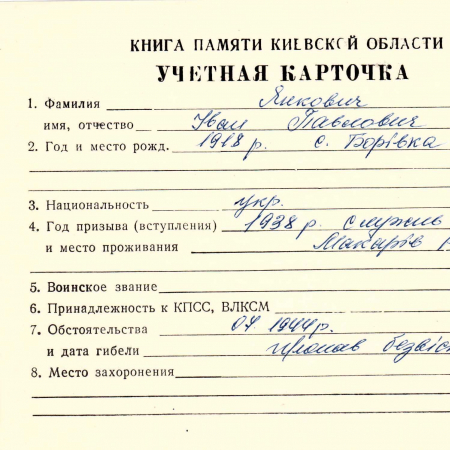 КНИГА ПАМЯТИ КИЕВСКОЙ ОБЛАСТИ
УЧЕТНАЯ КАРТОЧКА
1. Фамилия Янкович
имя, отчество Іван Павлович
2. Год и место рожд. 1918 р. с. Борівка
3. Национальность укр.
4. Год призыва (вступления) 1938 р. служив
и место проживания Макарів
5. Воинское звание
6. Принадлежность к КПСС, ВЛКСМ
7. Обстоятельства 04. 1944 р.
и дата гибели пропав безвіс
8. Место захоронения